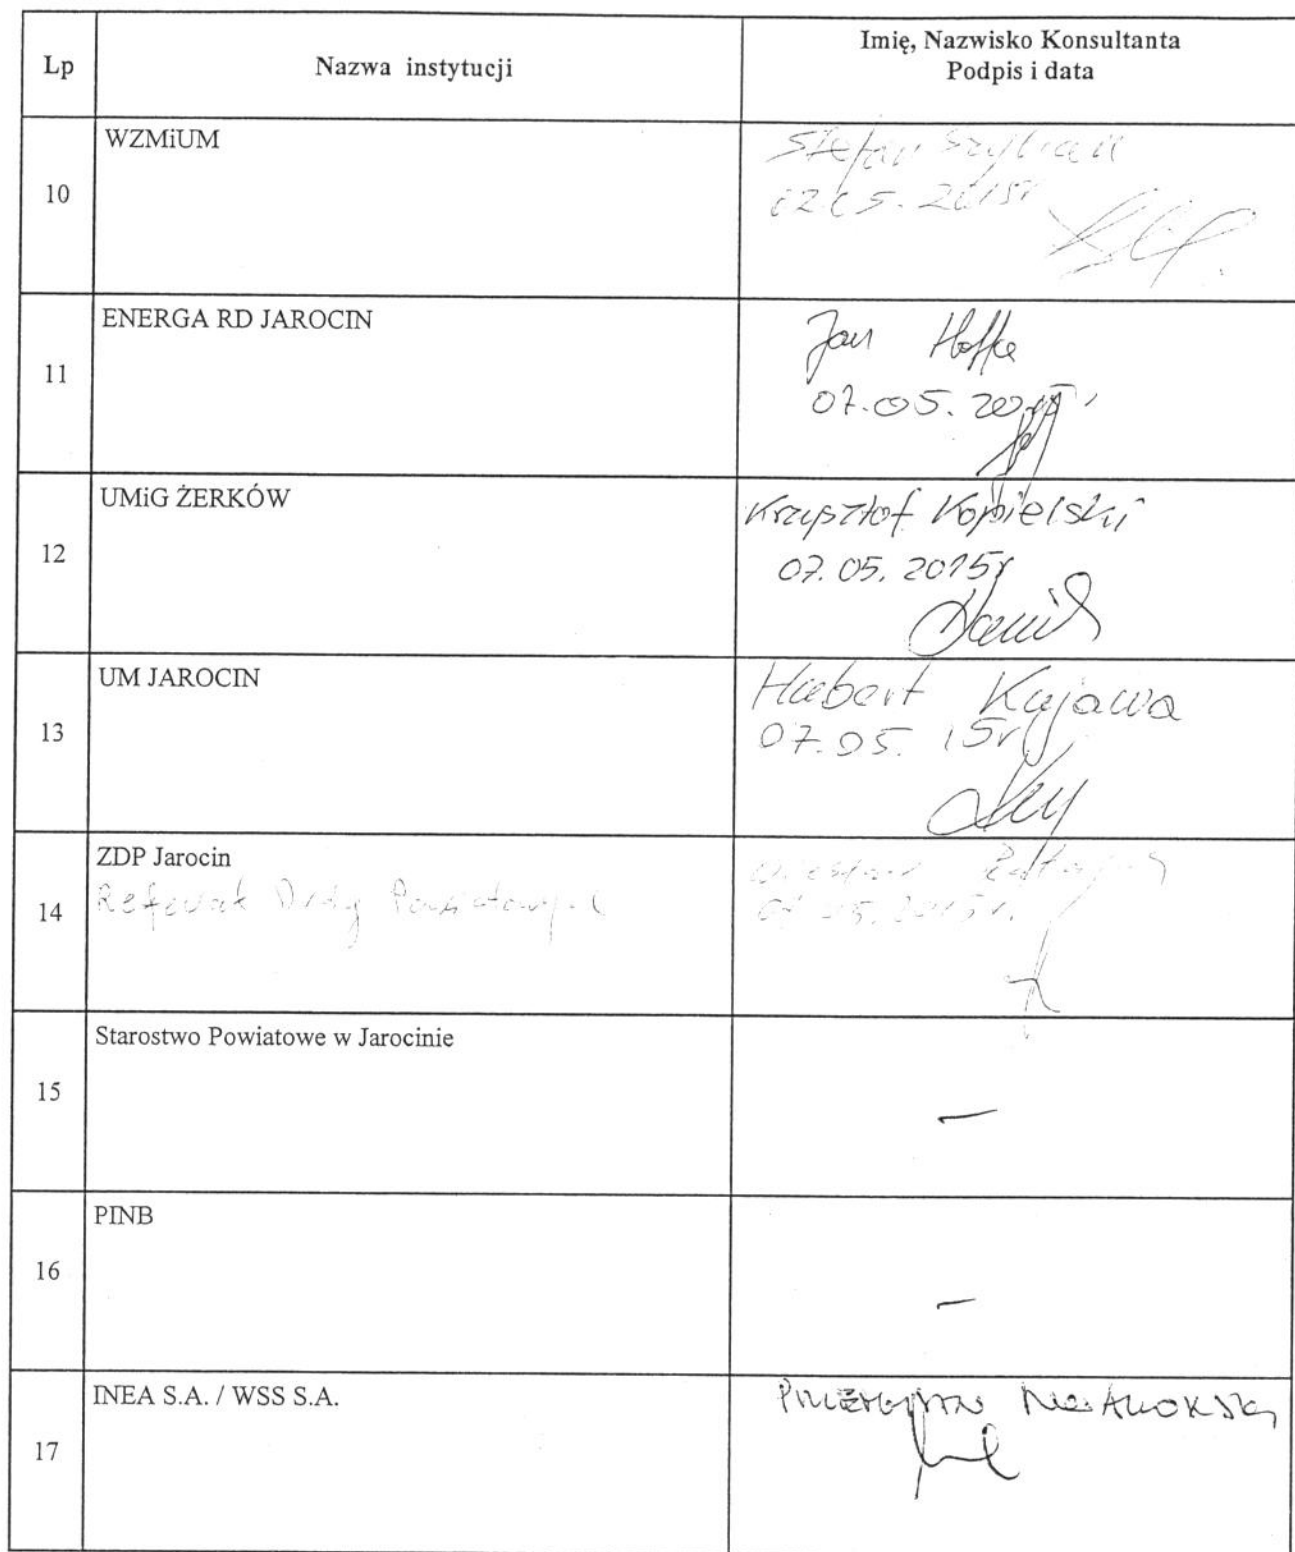 Lp
Nazwa instytucji
Imię, Nazwisko Konsultanta
Podpis i data
10
WZMiUM
Stefan
2015r
11
ENERGA RD JAROCIN
Jan
07.05.
12
UMiG ŻERKÓW
Krzysztof Kopielski
07.05.2015r
13
UM JAROCIN
Hubert Kujawa
07.05.15r
14
ZDP Jarocin
Referat
2015r.
15
Starostwo Powiatowe w Jarocinie
—
16
PINB
—
17
INEA S.A. / WSS S.A.